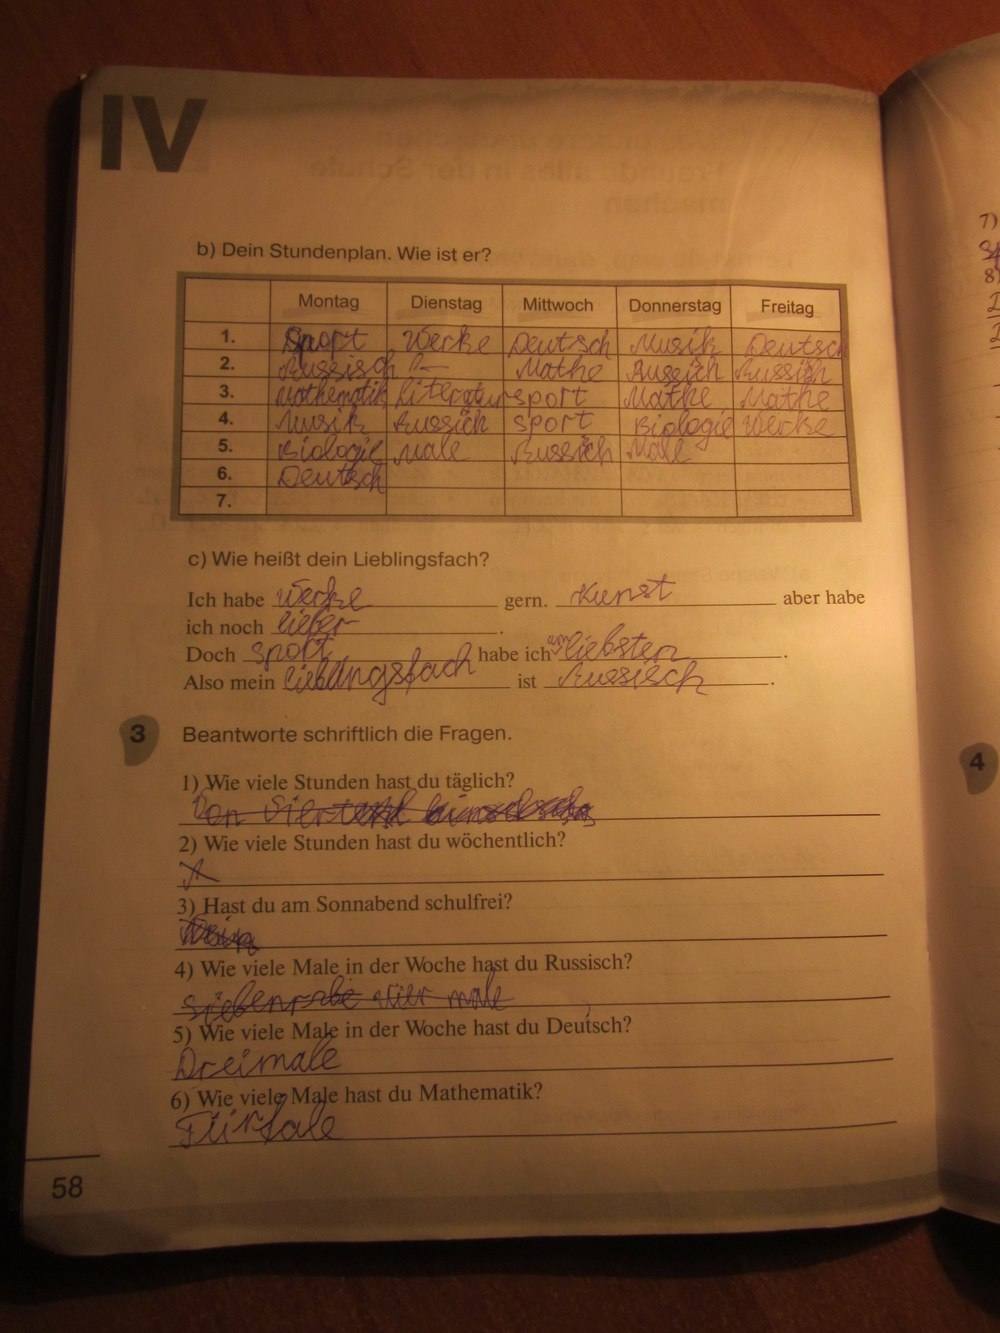 IV
b) Dein Stundenplan. Wie ist er?
Montag Dienstag Mittwoch Donnerstag Freitag
1. Sport Werke Deutsch Musik Deutsch
2. Russisch Mathe Russich Russich
3. Mathematik Literatur sport Mathe Mathe
4. Musik Russich sport Biologie Werke
5. Biologie Male Russich Male
6. Deutsch
7.
c) Wie heißt dein Lieblingsfach?
Ich habe Werke gern. Kunst aber habe
ich noch lieber.
Doch sport habe ich am liebsten.
Also mein lieblingsfach ist Russisch.
3 Beantworte schriftlich die Fragen.
1) Wie viele Stunden hast du täglich?
2) Wie viele Stunden hast du wöchentlich?
3) Hast du am Sonnabend schulfrei?
4) Wie viele Male in der Woche hast du Russisch?
vier male
5) Wie viele Male in der Woche hast du Deutsch?
Dreimale
6) Wie viele Male hast du Mathematik?
58
7)
8)
4